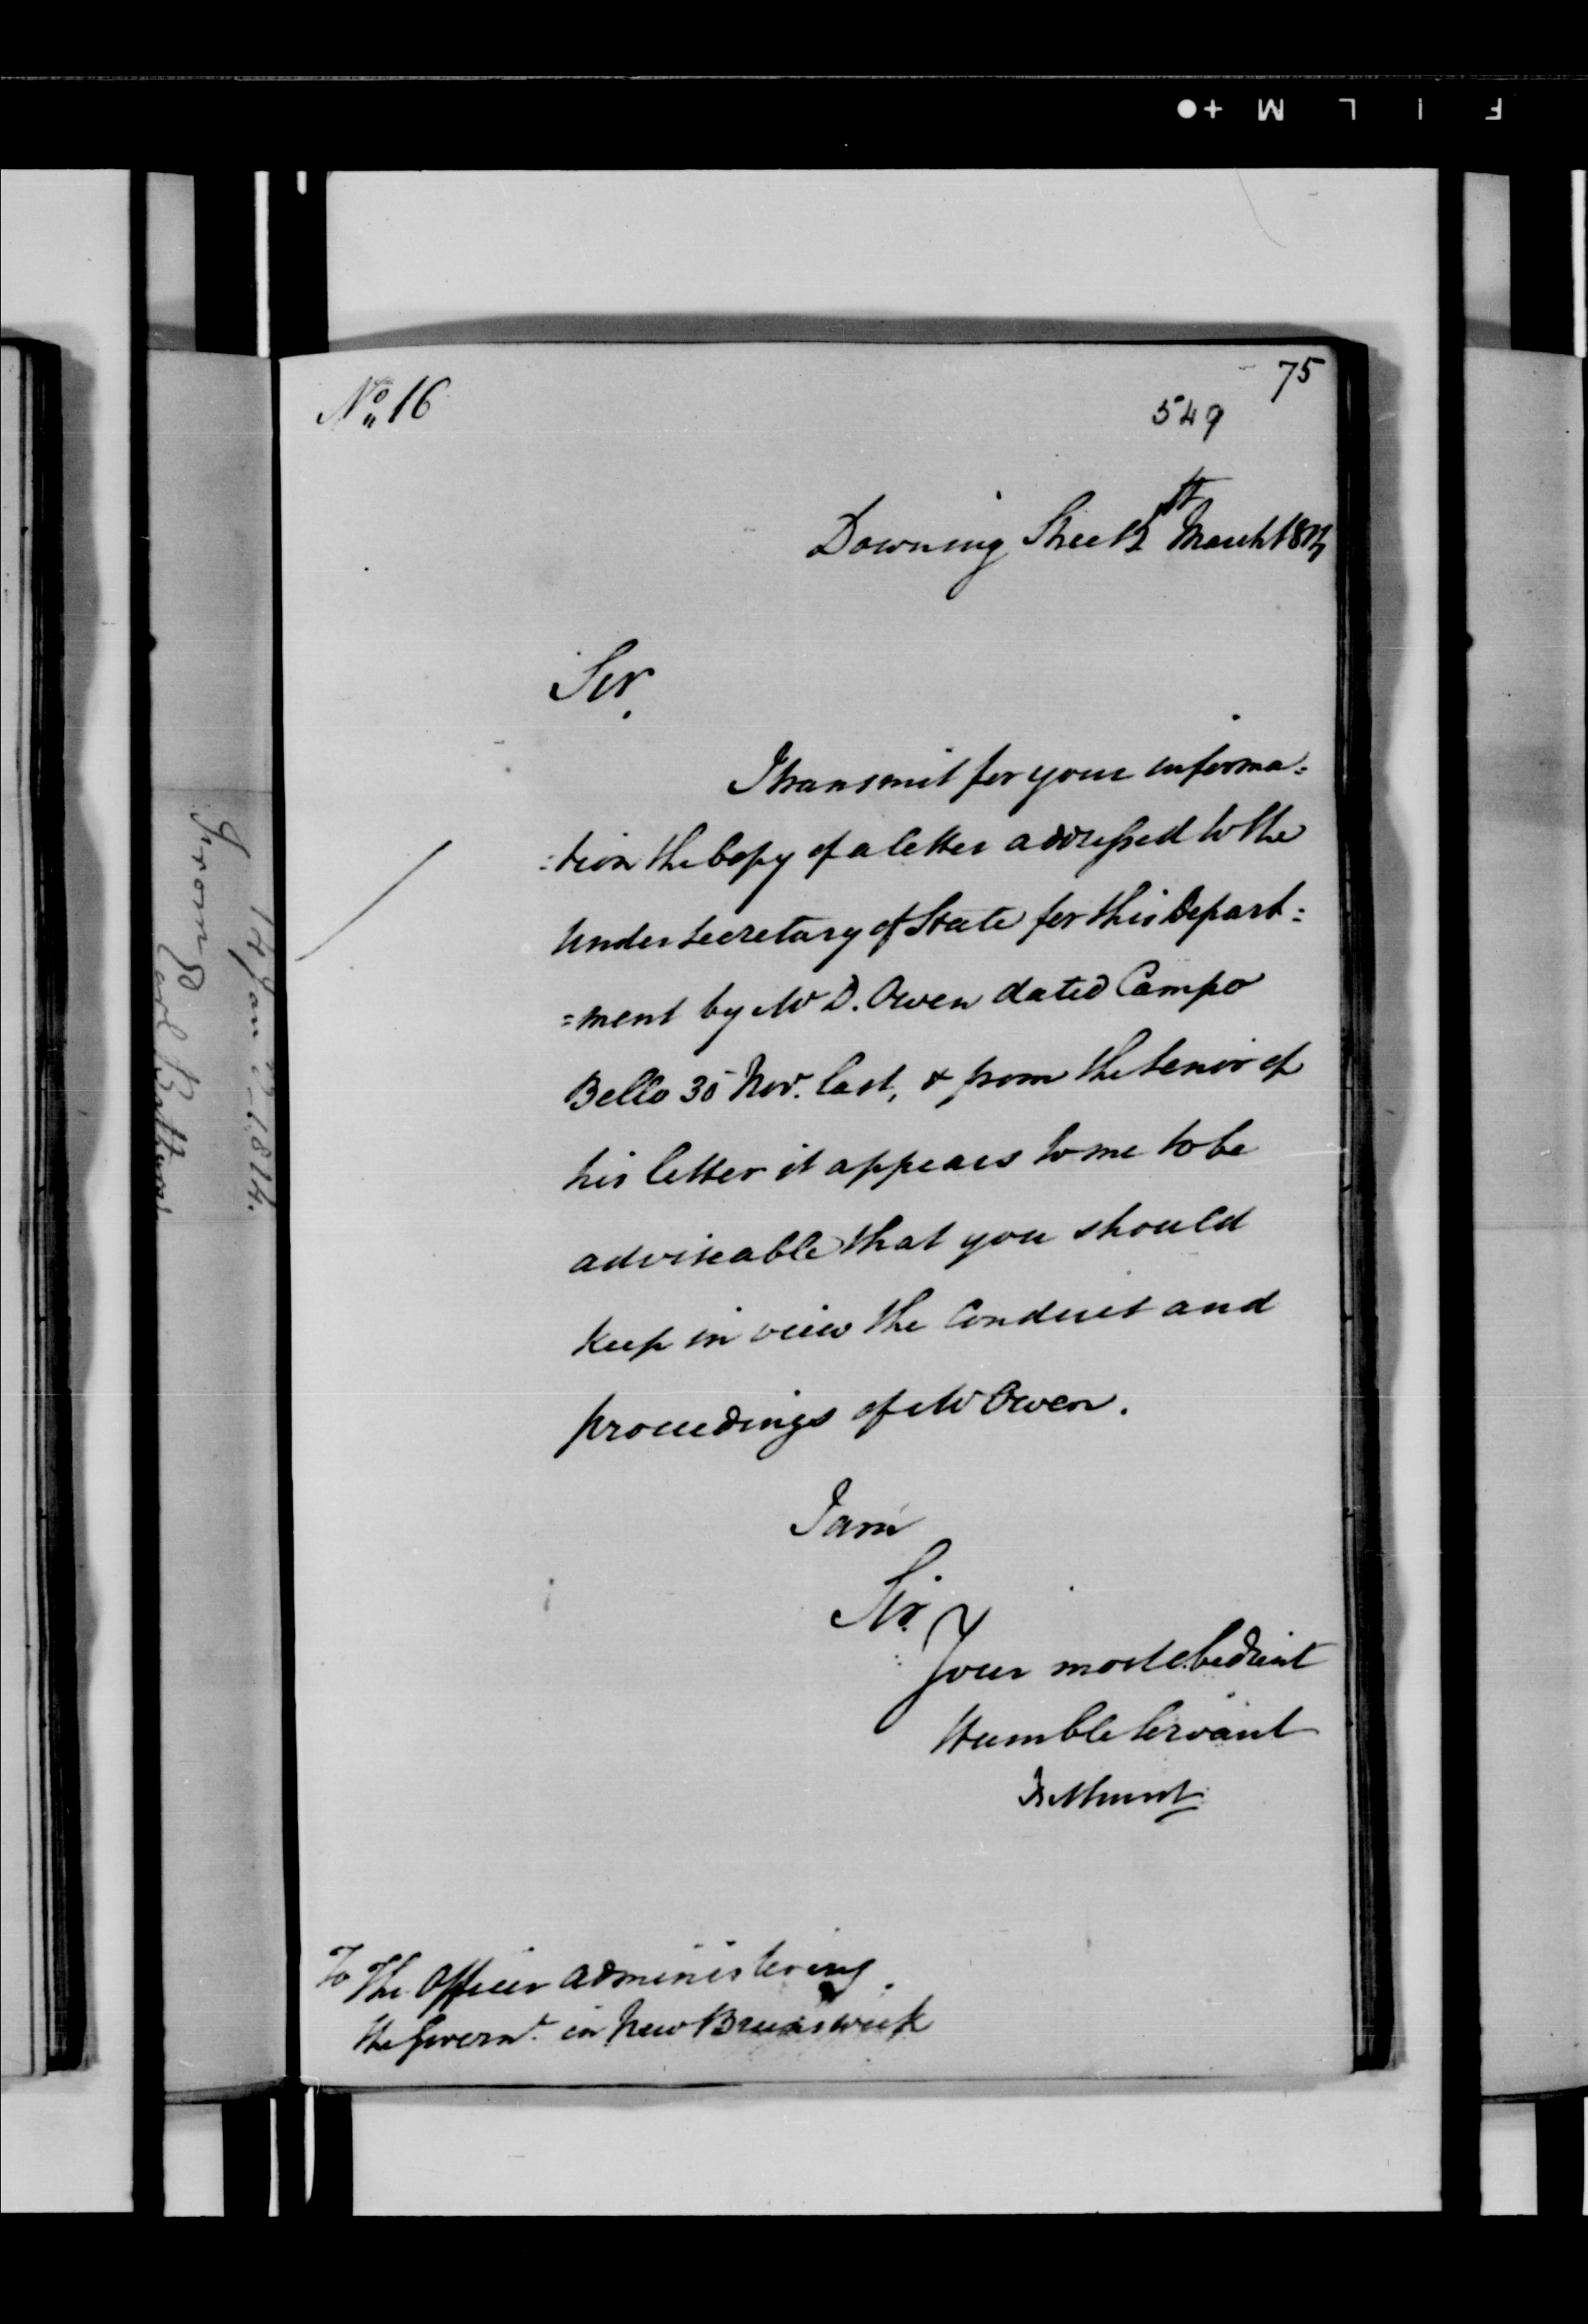 FILM
No. 16
75
549
Downing Street March
Sir,
I transmit for your informa=
=tion the Copy of a letter addressed to the
Under Secretary of State for this Depart=
=ment by Mr D. Owen dated Campo
Bello 30 Nov. last, & from the tenor of
his letter it appears to me to be
adviseable that you should
keep in view the Conduct and
proceedings of Mr Owen.
I am
Sir.
Your most obedient
Humble Servant
Bathurst
To The Officer Administering
the Governt. in New Brunswick
From
Earl Bathurst
1814.